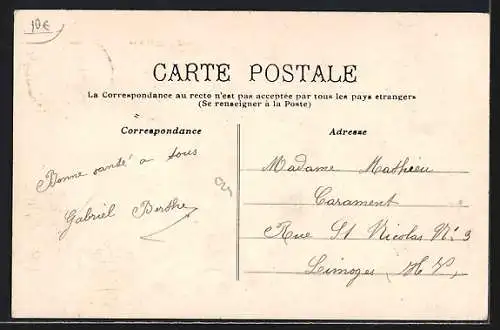 10€
CARTE POSTALE
La Correspondance au recto n'est pas acceptée par tous les pays etrangers
(Se renseigner à la Poste)
Correspondance
Adresse
Bonne santé a tous
Gabriel Berthe
Madame Mathieu
Carament
Rue St Nicolas N° 3
Limoges H. V.